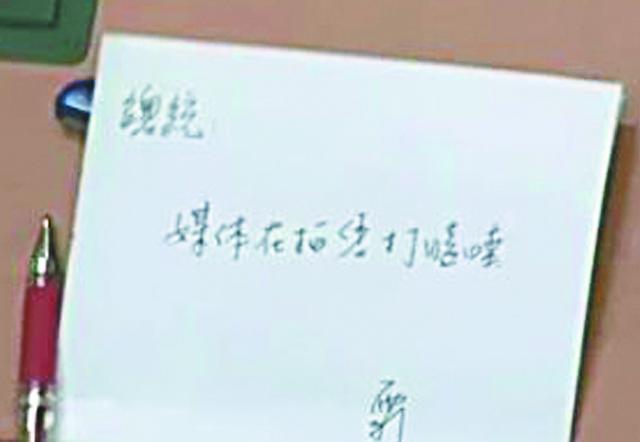 總統：
媒体在拍您打瞌睡